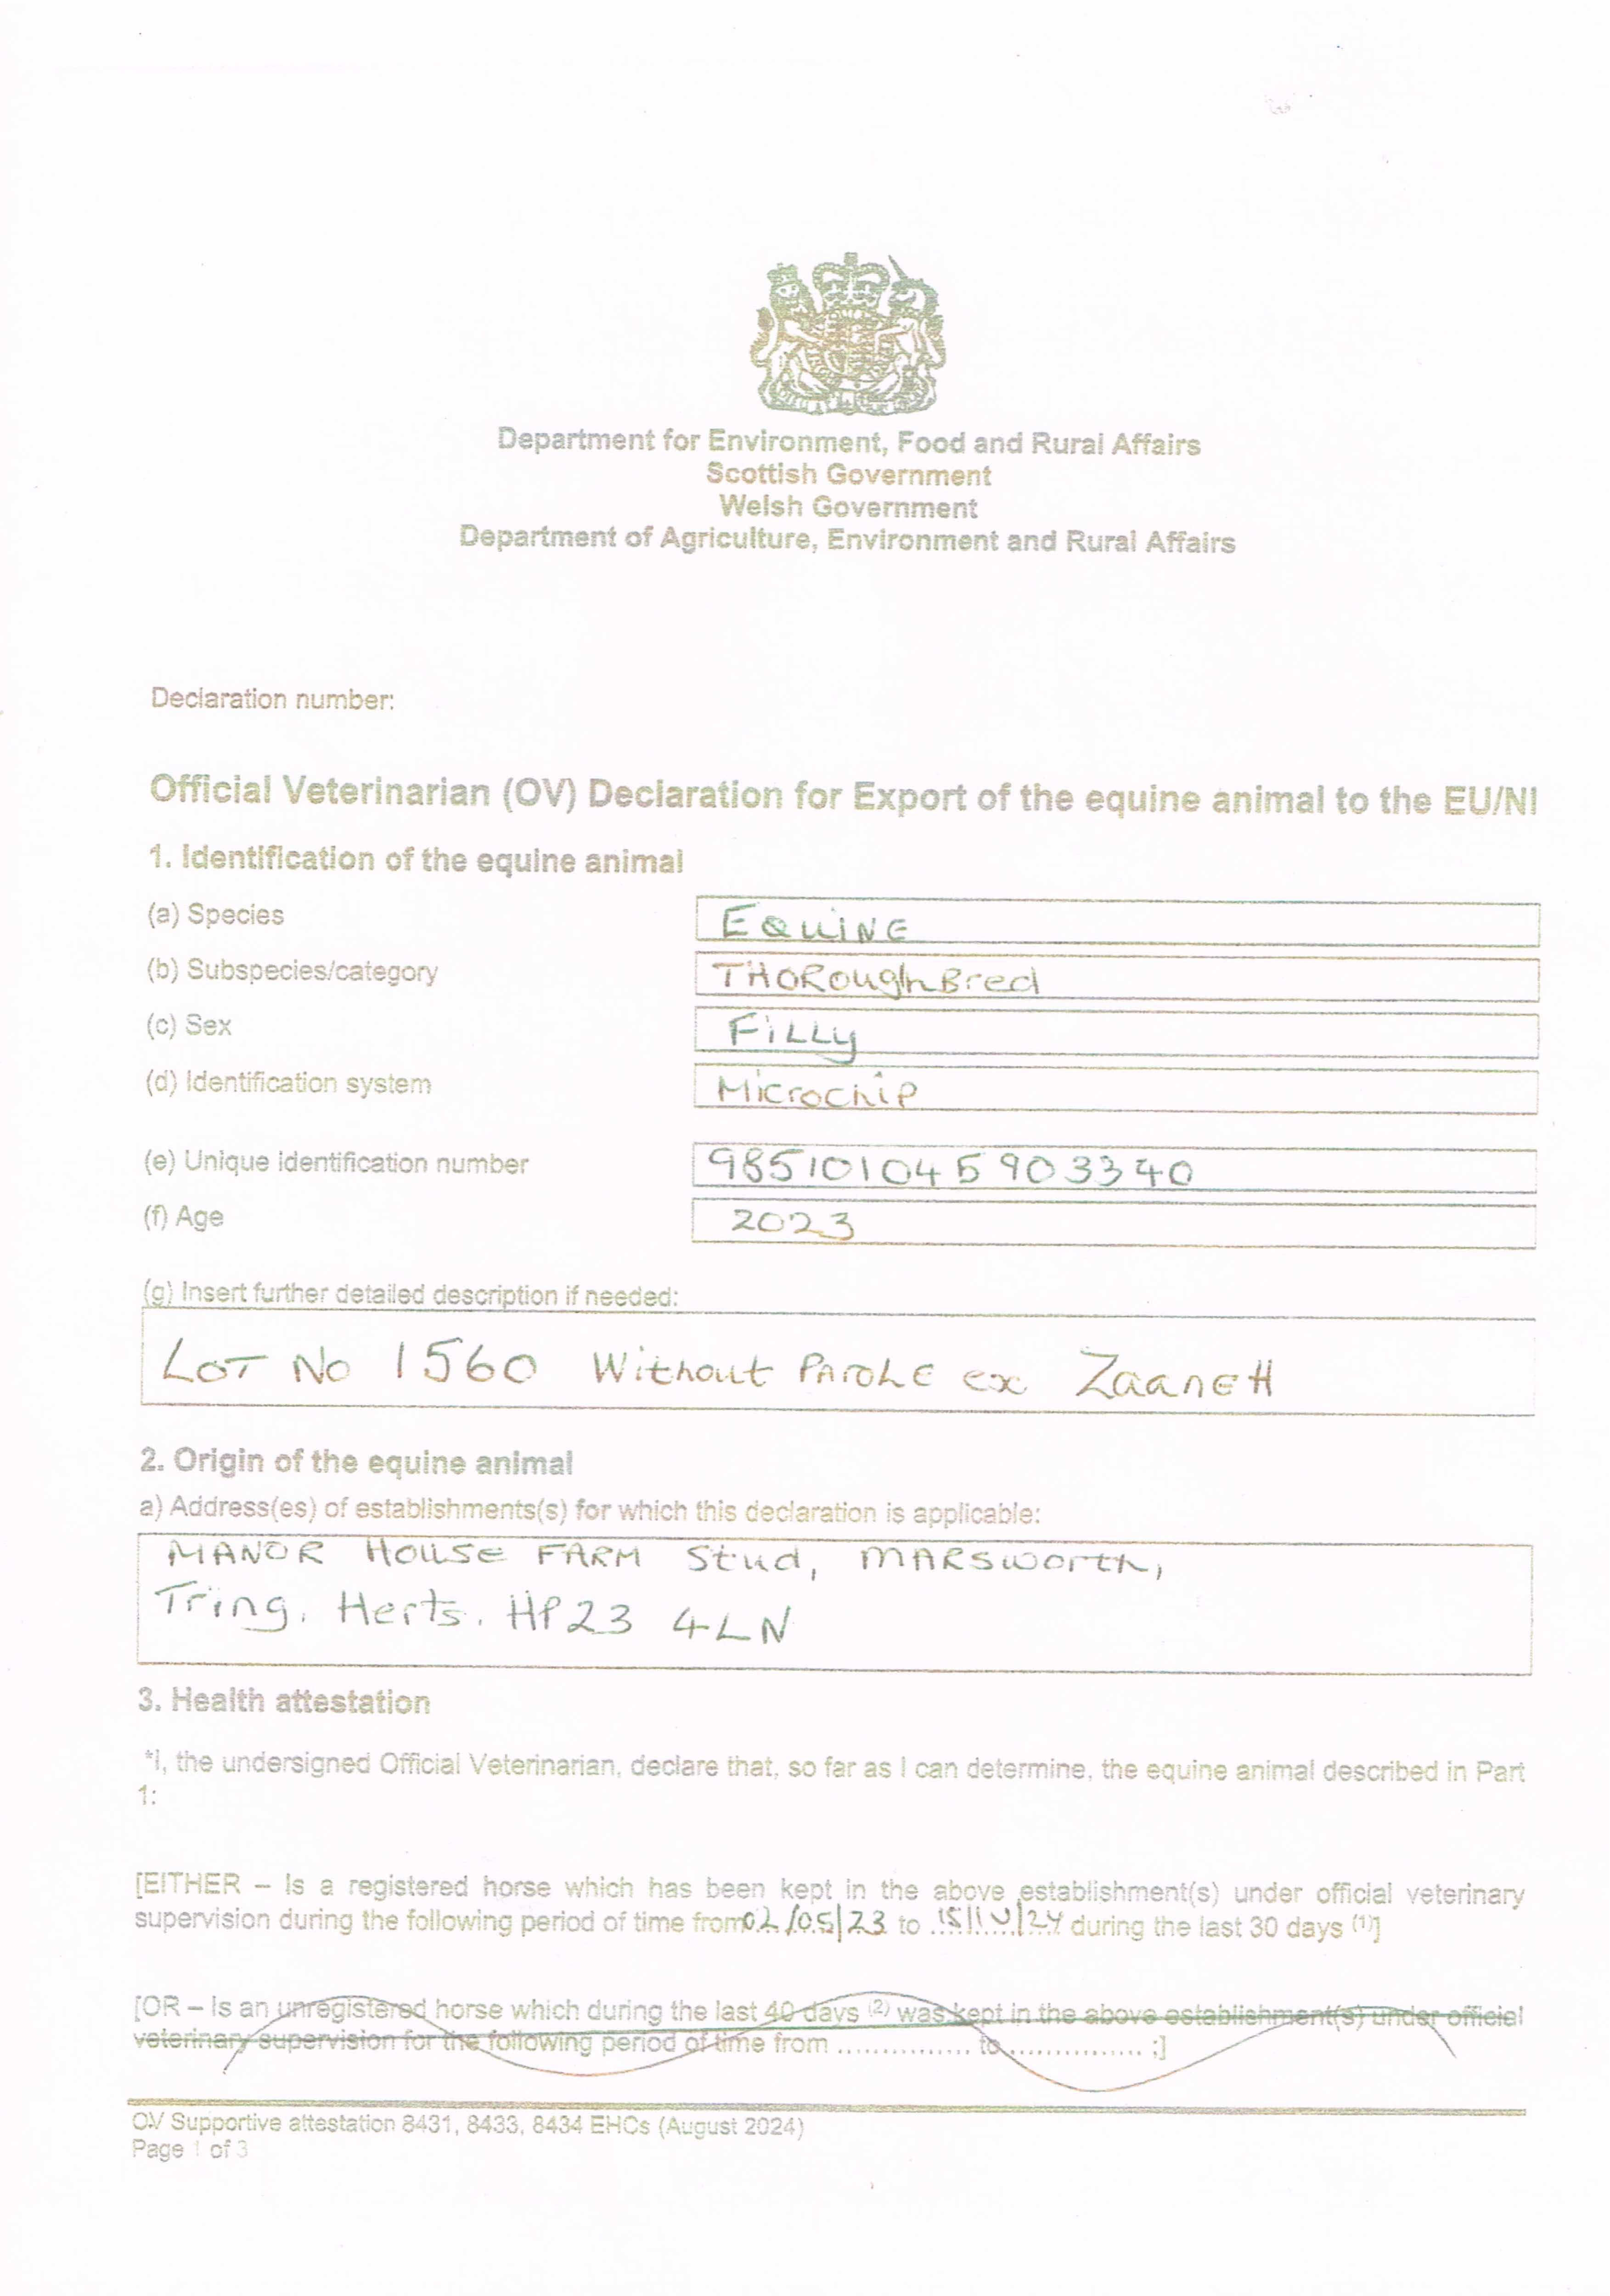 Department for Environment, Food and Rural Affairs
Scottish Government
Welsh Government
Department of Agriculture, Environment and Rural Affairs
Declaration number:
Official Veterinarian (OV) Declaration for Export of the equine animal to the EU/NI
1. Identification of the equine animal
(a) Species EQUINE
(b) Subspecies/category THOROUghBred
(c) Sex FiLLy
(d) Identification system Microchip
(e) Unique identification number 985101045903340
(f) Age 2023
(g) Insert further detailed description if needed:
LOT No 1560 Without PAROLE ex ZaanEH
2. Origin of the equine animal
a) Address(es) of establishments(s) for which this declaration is applicable:
MANOR HOUSE FARM Stud, MARSworth,
Tring. Herts. HP23 4LN
3. Health attestation
*I, the undersigned Official Veterinarian, declare that, so far as I can determine, the equine animal described in Part
1:
[EITHER – Is a registered horse which has been kept in the above establishment(s) under official veterinary
supervision during the following period of time from 02/05/23 to during the last 30 days (1)]
[OR – Is an unregistered horse which during the last 40 days (2) was kept in the above establishment(s) under official
veterinary supervision for the following period of time from ............... to ............... ;]
OV Supportive attestation 8431, 8433, 8434 EHCs (August 2024)
Page 1 of 3